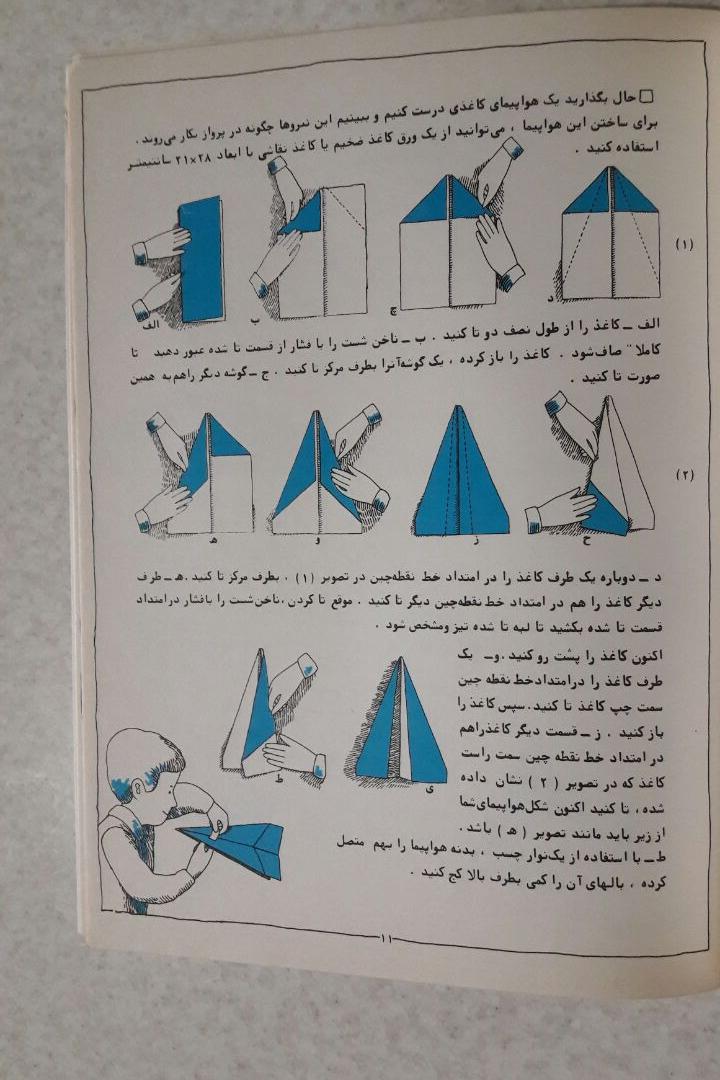 حال بگذارید یک هواپیمای کاغذی درست کنیم و ببینیم این نیروها چگونه در پرواز بکار می‌روند.
برای ساختن این هواپیما ، می‌توانید از یک ورق کاغذ ضخیم یا کاغذ نقاشی با ابعاد ۲۸×۲۱ سانتیمتر
استفاده کنید .
(۱)
الف ب چ د
الف ــ کاغذ را از طول نصف دو تا کنید . پ ــ ناخن شست را با فشار از قسمت تا شده عبور دهید تا
کاملا" صاف‌شود . کاغذ را باز کرده ، یک گوشه‌آنرا بطرف مرکز تا کنید . ج ــ گوشه دیگر راهم‌به همین
صورت تا کنید .
(۲)
ه و ز ح
د ــ دوباره یک طرف کاغذ را در امتداد خط نقطه‌چین در تصویر (۱) ، بطرف مرکز تا کنید .هـ ــ طرف
دیگر کاغذ را هم در امتداد خط نقطه‌چین دیگر تا کنید . موقع تا کردن ،ناخن‌شست را با‌فشار در‌امتداد
قسمت تا شده بکشید تا لبه تا شده تیز ومشخص شود .
اکنون کاغذ را پشت رو کنید .و‌ــ یک
طرف کاغذ را در‌امتداد‌خط نقطه چین
سمت چپ کاغذ تا کنید.سپس کاغذ را
باز کنید . ز ــ قسمت دیگر کاغذ‌راهم
در امتداد خط نقطه چین سمت راست
کاغذ که در تصویر ( ۲ ) نشان داده
شده، تا کنید اکنون شکل‌هواپیمای‌شما
از زیر باید مانند تصویر ( ه ) باشد .
ط ی
ط ــ با استفاده از یک‌نوار چسب ، بدنه هواپیما را بهم متصل
کرده ، بالهای آن را کمی بطرف بالا کج کنید .
۱۱